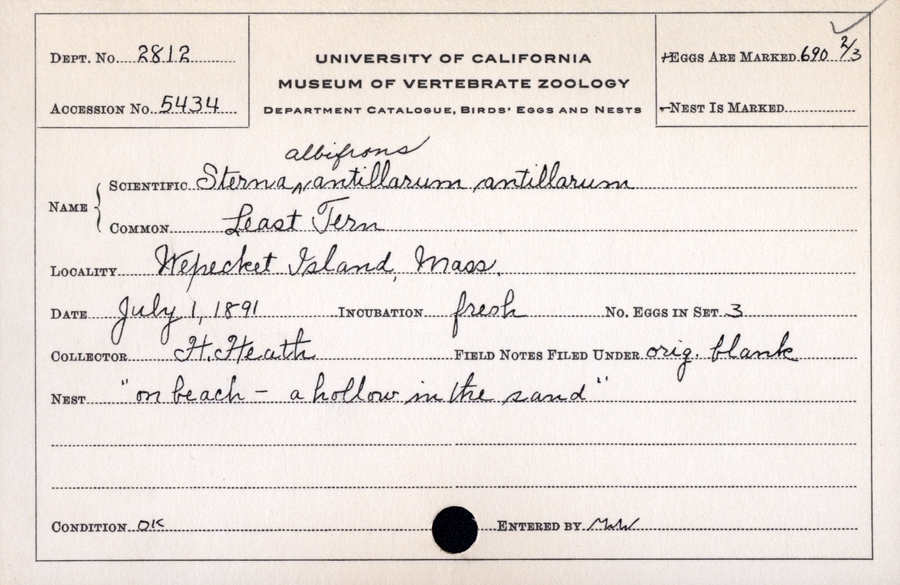 Dept. No. 2812
Accession No. 5434
University of California
Museum of Vertebrate Zoology
Department Catalogue, Birds' Eggs and Nests
Eggs Are Marked 690 2/3
Nest Is Marked
albifrons
Name Scientific Sterna ^ antillarum antillarum
Common Least Tern
Locality Wepecket Island, Mass.
Date July 1, 1891 Incubation fresh No. Eggs in Set 3
Collector H. Heath Field Notes Filed Under orig. blank
Nest "on beach – a hollow in the sand"
Condition OK Entered by